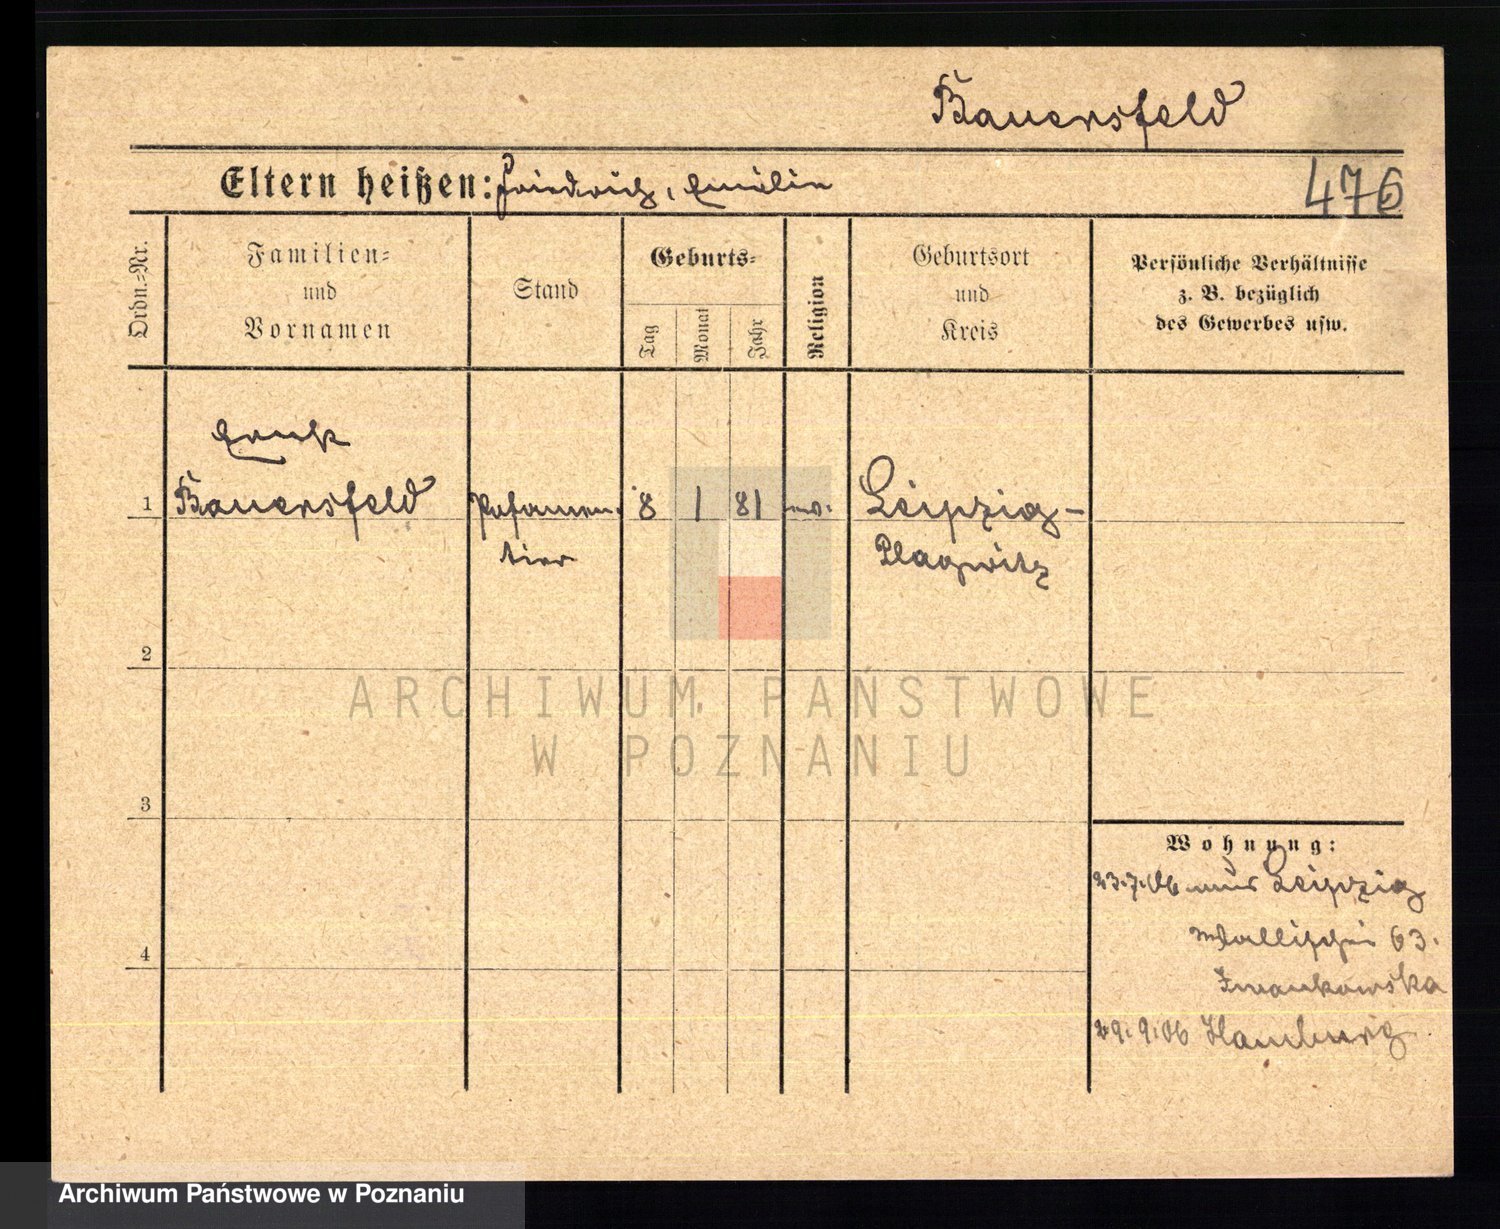 Bauersfeld
Eltern heißen: Friedrich, Emilie
476
Ordn.-Nr.
Familien-
und
Vornamen
Stand
Geburts-
Tag
Monat
Jahr
Religion
Geburtsort
und
Kreis
Persönliche Verhältnisse
z. B. bezüglich
des Gewerbes usw.
Ernst
1 Bauersfeld Posamen- 8 1 81 ev. Leipzig-
tier Plagwitz
2
3
4
Wohnung:
23.7.06 aus Leipzig
Wallischei 63.
Iwankowska
29.9.06 Hamburg.
ARCHIWUM PAŃSTWOWE
W POZNANIU
Archiwum Państwowe w Poznaniu